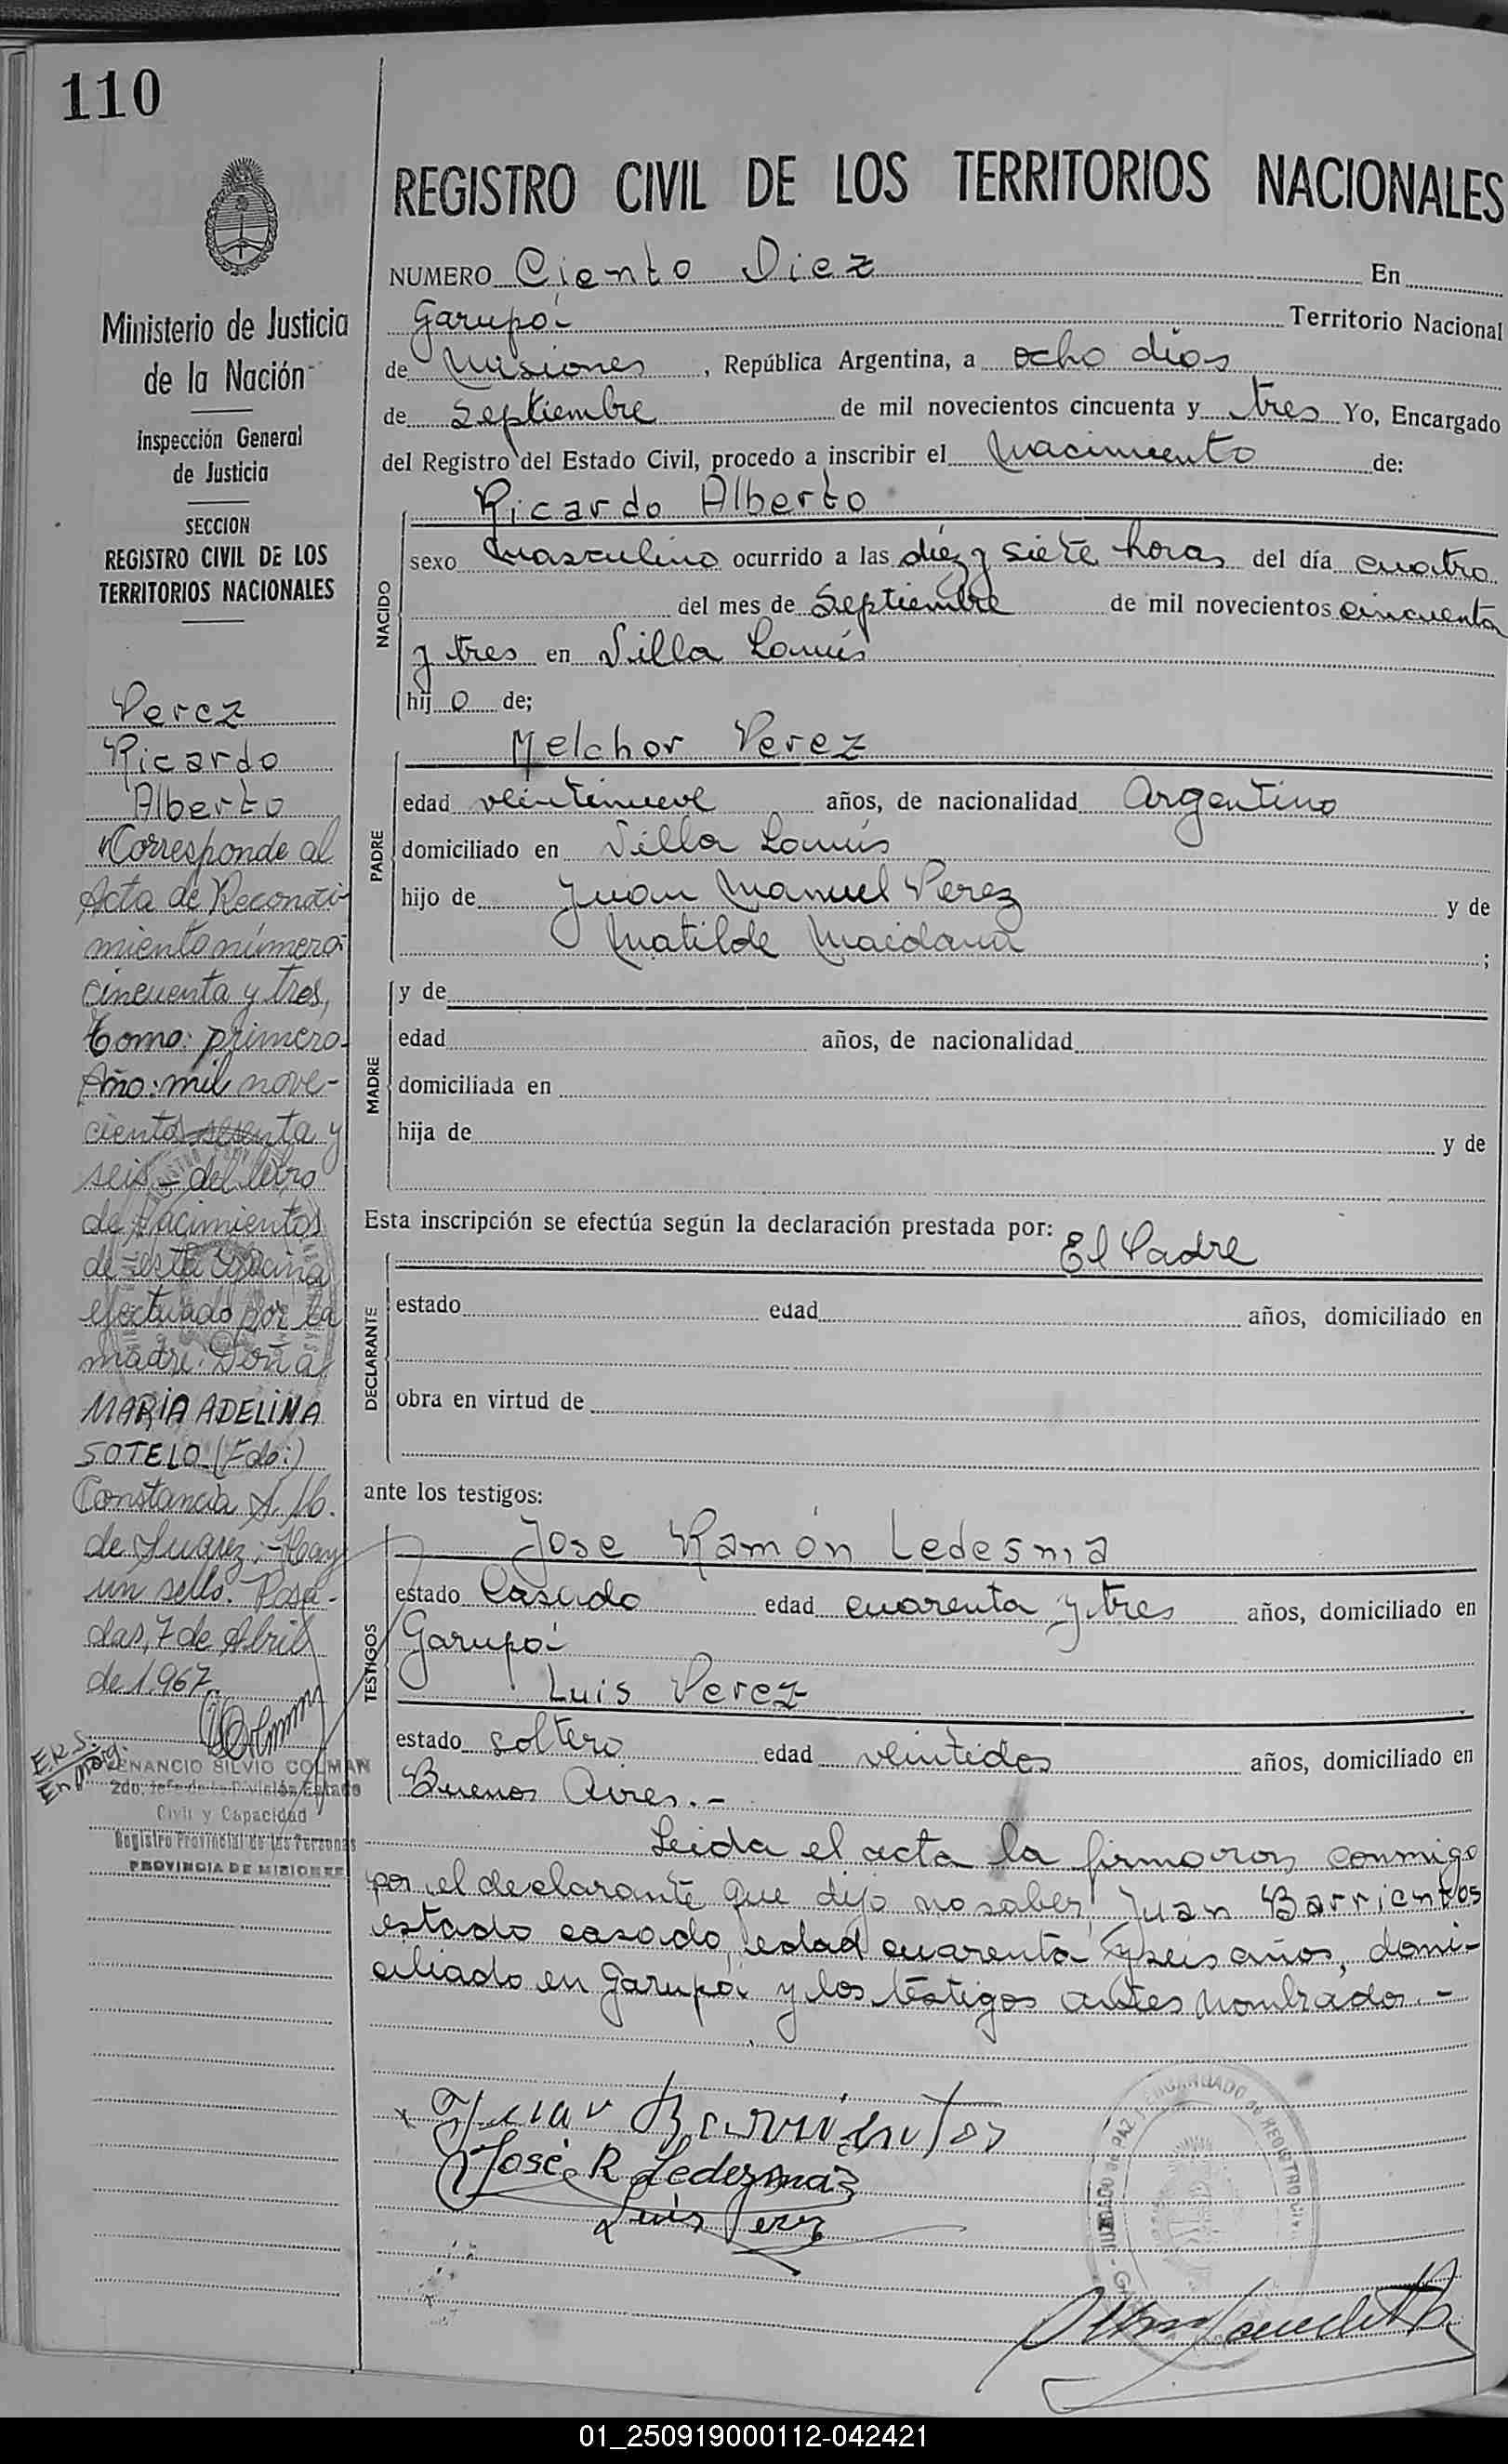 110
REGISTRO CIVIL DE LOS TERRITORIOS NACIONALES
Ministerio de Justicia
de la Nación
Inspección General
de Justicia
SECCION
REGISTRO CIVIL DE LOS
TERRITORIOS NACIONALES
Perez
Ricardo
Alberto
"Corresponde al
Acta de Reconoci-
miento número:
cincuenta y tres,
Tomo: primero-
Año: mil nove-
cientos sesenta y
seis - del libro
de Nacimientos
de esta Oficina
efectuado por la
madre: Doña
MARIA ADELINA
SOTELO. (Fdo:)
Constancia A. M.
de Suarez; - Hay
un sello. Posa-
das, 7 de Abril
de 1.967.
E.R.S.
En Marg.
VENANCIO SILVIO COLMAN
2do. Jefe de la División Estado
Civil y Capacidad
Registro Provincial de las Personas
PROVINCIA DE MISIONES
NUMERO Ciento Diez En
Garupá- Territorio Nacional
de Misiones, República Argentina, a ocho dias
de Septiembre de mil novecientos cincuenta y tres Yo, Encargado
del Registro del Estado Civil, procedo a inscribir el Nacimiento de:
NACIDO
Ricardo Alberto
sexo masculino ocurrido a las diez y siete horas del día cuatro
del mes de Septiembre de mil novecientos cincuenta
y tres en Villa Lanús
hij o de;
PADRE
Melchor Perez
edad veintinueve años, de nacionalidad Argentino
domiciliado en Villa Lanús
hijo de Juan Manuel Perez y de
Matilde Maidana ;
MADRE
y de
edad años, de nacionalidad
domiciliada en
hija de y de
Esta inscripción se efectúa según la declaración prestada por: El Padre
DECLARANTE
estado edad años, domiciliado en
obra en virtud de
ante los testigos:
TESTIGOS
Jose Ramón Ledesma
estado Casado edad cuarenta y tres años, domiciliado en
Garupá-
Luis Perez
estado soltero edad veintidos años, domiciliado en
Buenos Aires.-
Leida el acta la firmaron conmigo
por el declarante que dijo no saber, Juan Barrientos
estado casado, edad cuarenta y seis años, domi-
ciliado en Garupá y los testigos antes nombrados.-
Juan Barrientos
José R Ledezma
Luis Perez
JUZGADO de PAZ y ENCARGADO de REGISTRO CIVIL
01_250919000112-042421